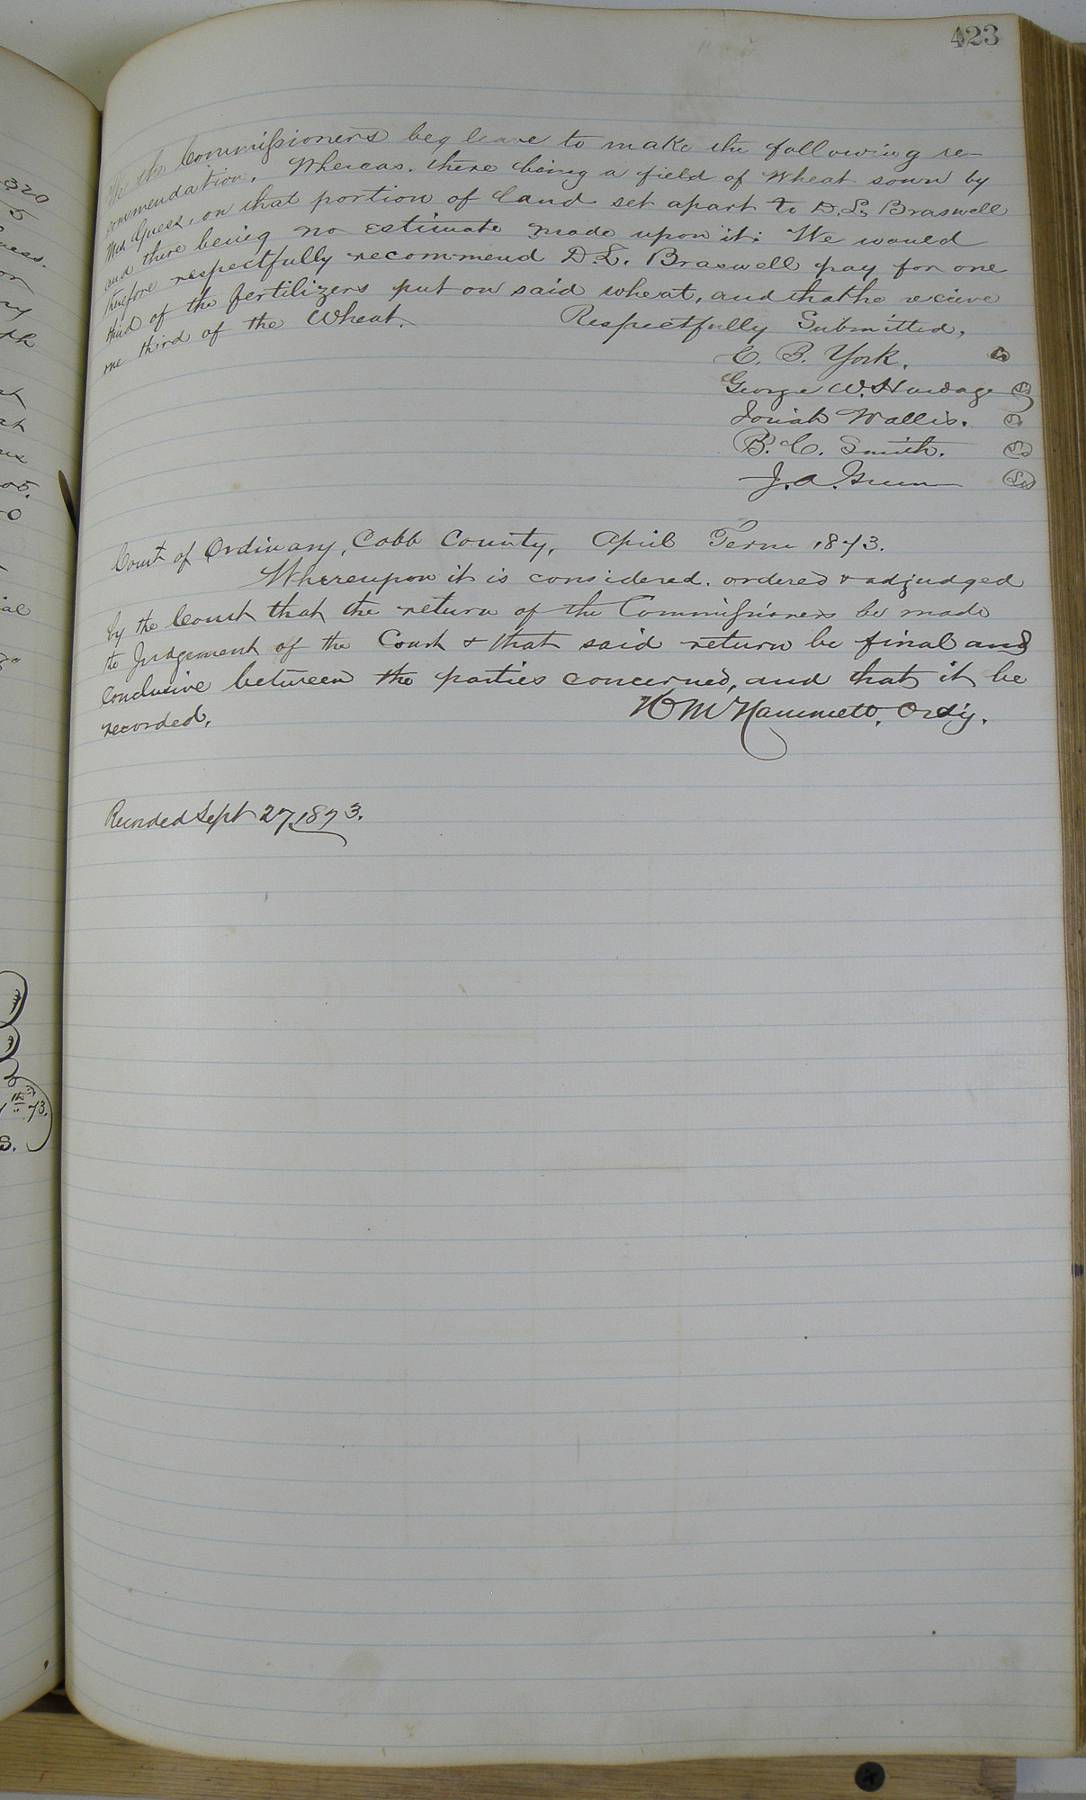 423
We the Commissioners beg leave to make the following re-
commendation. Whereas. there being a field of Wheat sown by
Mrs Guess, on that portion of Land set apart to D. L. Braswell
and there being no estimate made upon it: We would
therefore respectfully recommend D. L. Braswell pay for one
third of the fertilizers put on said wheat, and that he recieve
one third of the Wheat.
Respectfully Submitted,
C. B. York.
George W.
Josiah Wallis.
B. C. Smith.
J. A. Green
Court of Ordinary, Cobb County, April Term 1873.
Whereupon it is considered. ordered & adjudged
by the Court that the return of the Commissioners be made
the Judgement of the Court & that said return be final and
conclusive between the parties concerned, and that it be
recorded.
H M Hammett, Ord'y.
Recorded Sept 27, 1873.
320
5